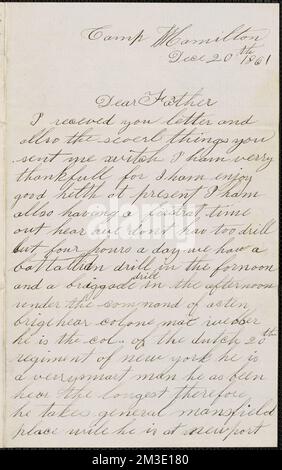 Camp Hamilton
Dece 20th 1861
Dear Father
I receved you letter and
allso the severl things you
sent me witch I ham verry
thankfull for I ham enjoy
good helth at present I ham
allso having a time
out hear we dont hav too drill
but four hours a day we hav a
battallion drill in the fornoon
and a briggade drill in the afternoon
under the command of acten
brige hear colone max weaber
he is the col. of the dutch 20th
regiment of new york he is
a verry smart man he as been
hear the longest therefore
he takes general mansfield
place wile he is at newport
alamy
Image ID: 2M3E180
www.alamy.com